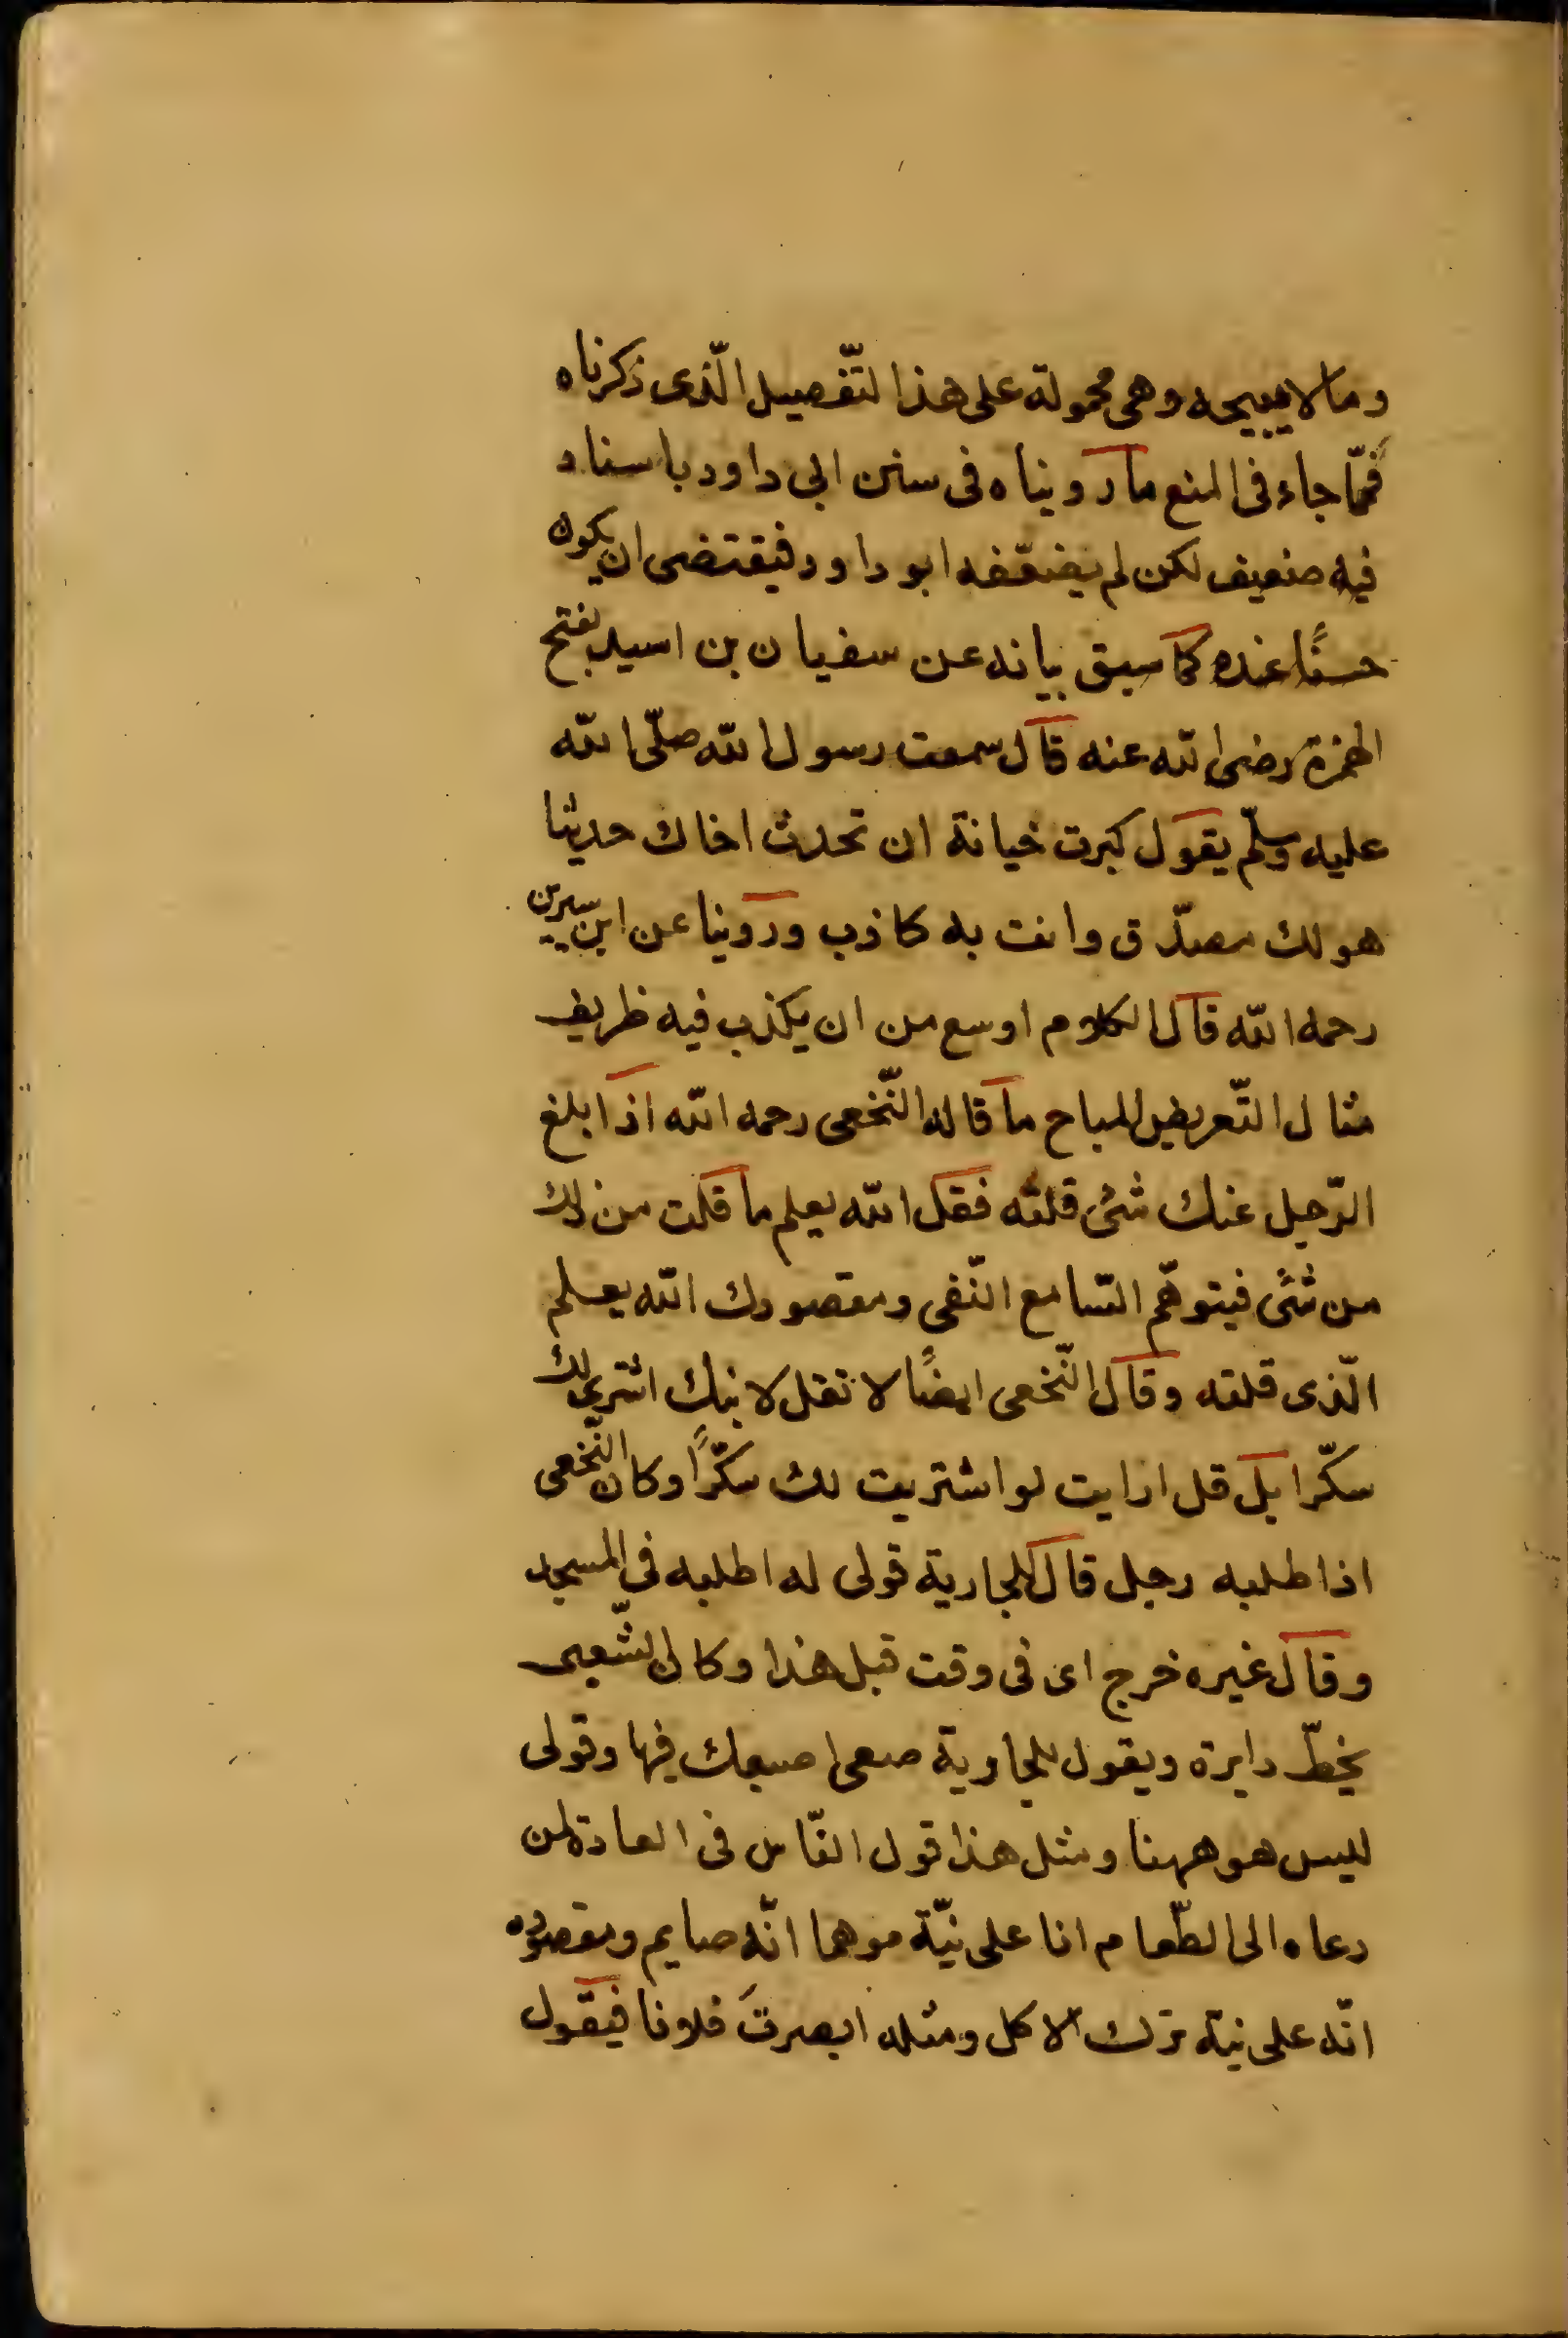 وما لا يبيحه وهى محمولة على هذا التّفصيل الّذى ذكرناه
فمّما جاء فى المنع ما رويناه فى سنن ابى داود باسناد
فيه ضعيف لكن لم يضعّفه ابو داود فيقتضى ان يكون
حسنًا عنده كما سبق بيانه عن سفيان بن اسيد بفتح
الهمزة رضى الله عنه قال سمعت رسول الله صلّى الله
عليه وسلّم يقول كبرت خيانة ان تحدث اخاك حديثا
هو لك مصدّق وانت به كاذب وروينا عن ابن سيرين
رحمه الله قال الكلام اوسع من ان يكذب فيه ظريف
مثال التّعريض المباح ما قاله النّخعى رحمه الله اذا بلغ
الرّجل عنك شئ قلته فقل الله يعلم ما قلت من ذلك
من شئ فيتوهّم السّامع النّفى ومقصودك الله يعلم
الّذى قلته وقال النّخعى ايضًا لا تقل لابنك اشترى لك
سكّرا بل قل ارايت لو اشتريت لك سكّرًا وكان النّخعى
اذا طلبه رجل قال للجارية قولى له اطلبه فى المسجد
وقال غيره خرج اى فى وقت قبل هذا وكان الشّعبى
يخطّ دايرة ويقول للجارية ضعى اصبعك فيها وقولى
ليس هو ههنا ومثل هذا قول النّاس فى العادة لمن
دعاه الى الطّعام انا على نيّة موهما انّه صايم ومقصوده
انّه على نية ترك الاكل ومثله ابصرتَ فلانا فيقول